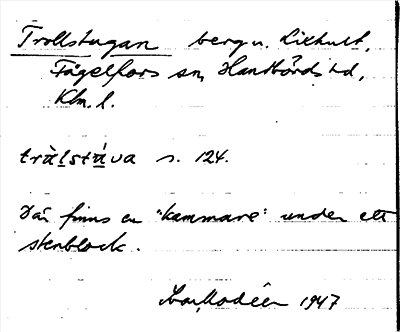 Trollstugan berg n. Lixhult,
Fågelfors sn, Handbörds hd,
Klm. l.
trälstáva s. 124.
Där finns en "kammare" under ett
stenblock.
Ivar Modéer 1947